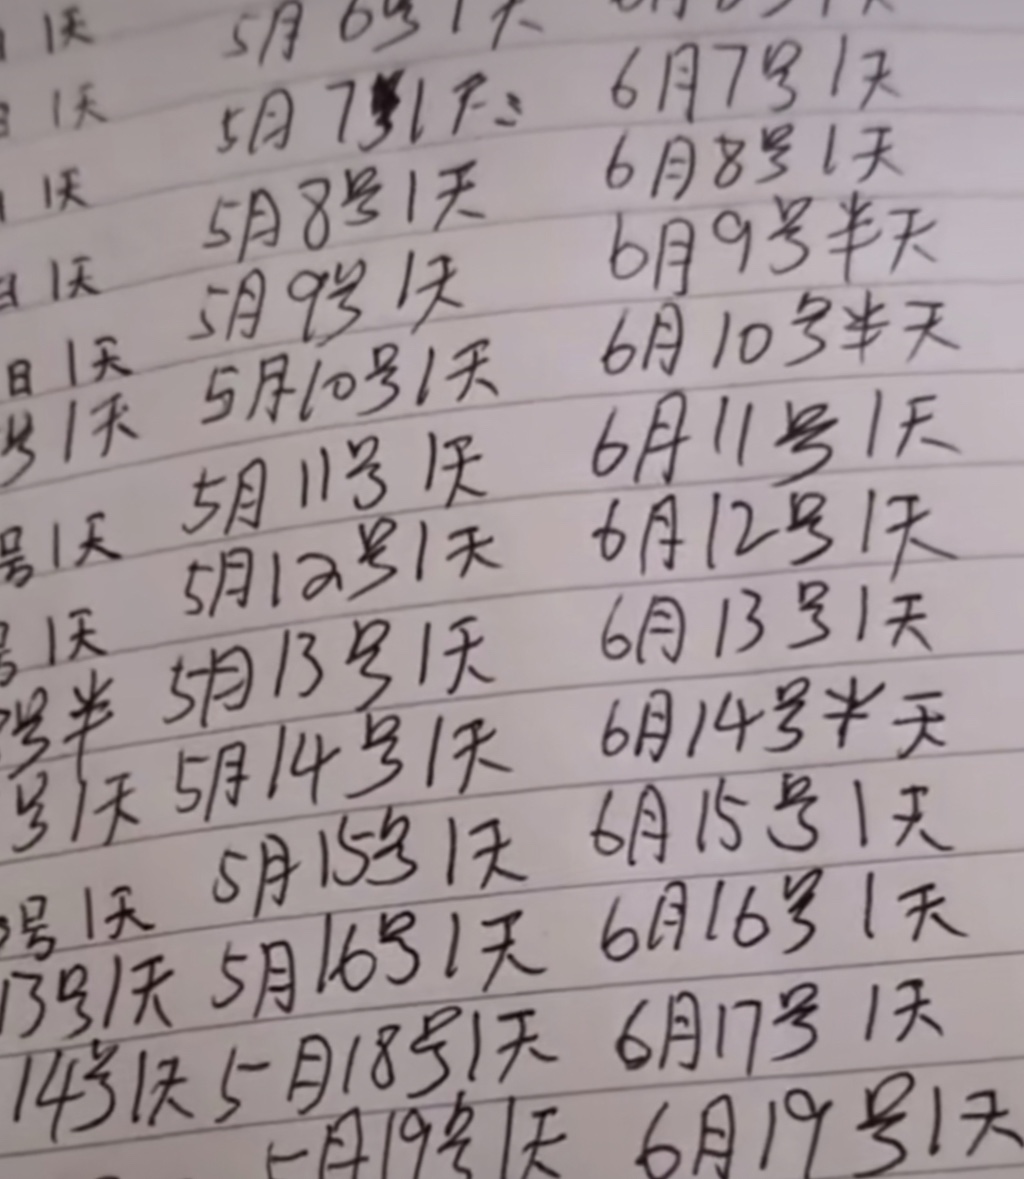 1天 5月6号1天
1天 5月7号1天 6月7号1天
1天 5月8号1天 6月8号1天
日1天 5月9号1天 6月9号半天
日1天 5月10号1天 6月10号半天
号1天 5月11号1天 6月11号1天
号1天 5月12号1天 6月12号1天
号1天 5月13号1天 6月13号1天
号半 5月14号1天 6月14号半天
号1天 5月15号1天 6月15号1天
号1天 5月16号1天 6月16号1天
13号1天 5月18号1天 6月17号1天
14号1天 5月19号1天 6月19号1天